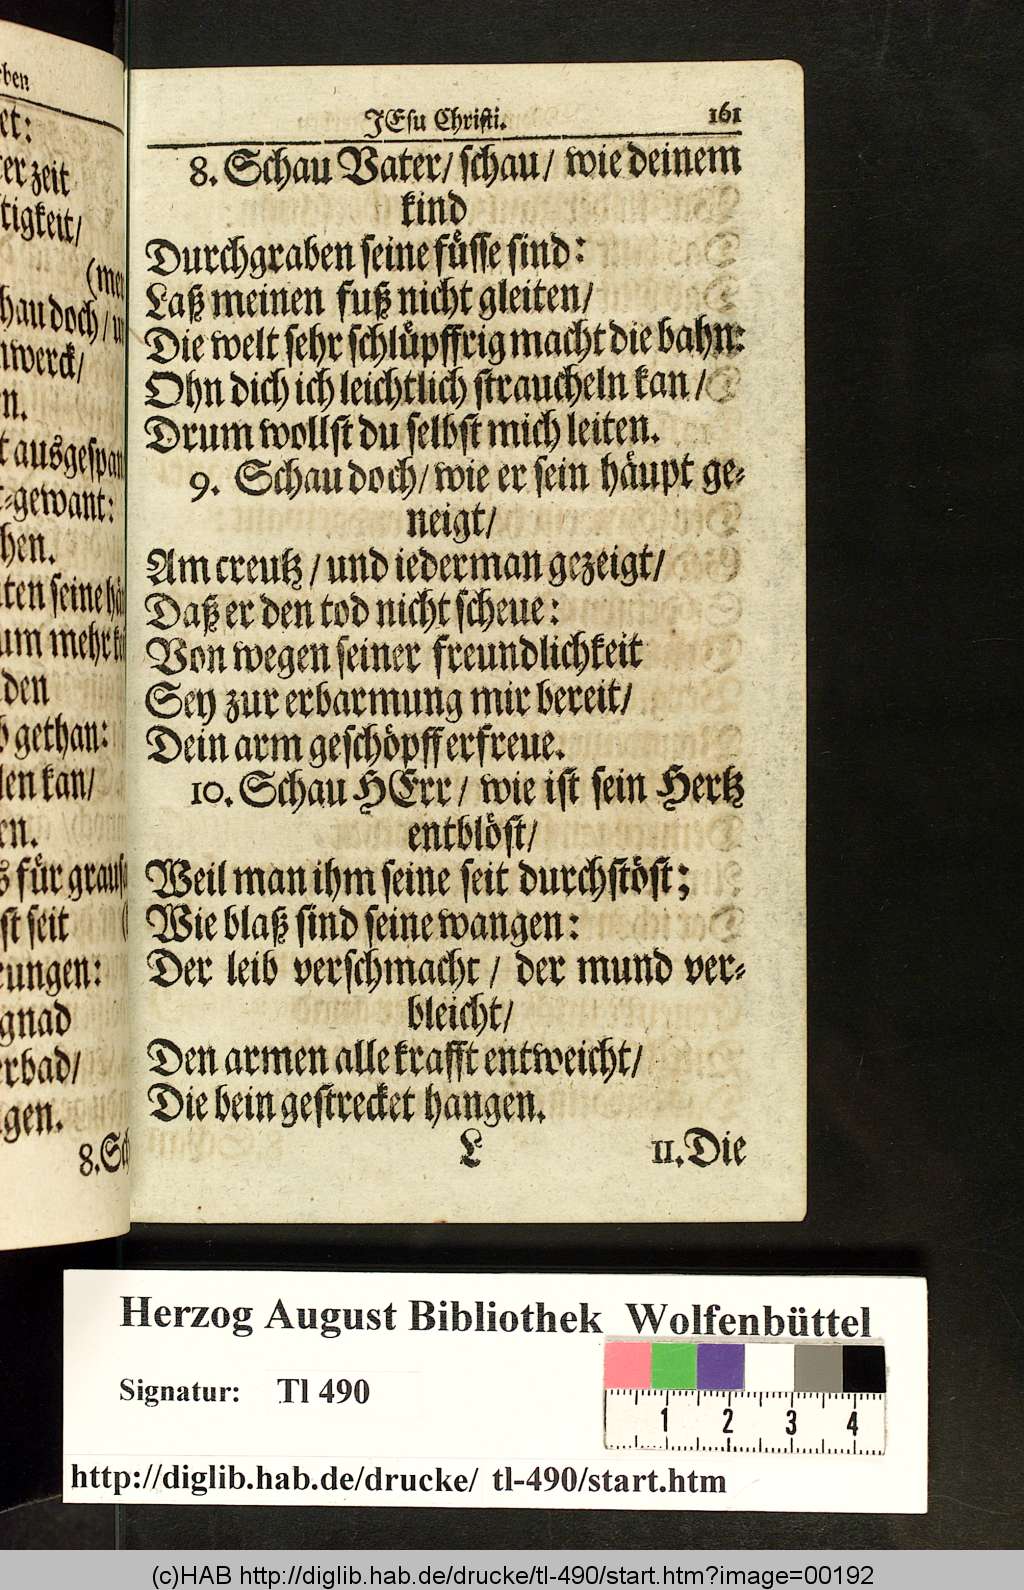 rben
et:
er zeit
tigkeit/
(men
hau doch/
nwerck/
n.
t ausgespan
t=gewant:
hen.
ten seine hän
um mehr
den
b gethan:
len kan/
en.
s für graus
st seit
rungen:
gnad
erbad/
gen.
8.Sch
JEsu Christi. 161
8. Schau Vater/ schau/ wie deinem
kind
Durchgraben seine füsse sind:
Laß meinen fuß nicht gleiten/
Die welt sehr schlüpffrig macht die bahn:
Ohn dich ich leichtlich straucheln kan/
Drum wollst du selbst mich leiten.
9. Schau doch/ wie er sein häupt ge=
neigt/
Am creutz/ und iederman gezeigt/
Daß er den tod nicht scheue:
Von wegen seiner freundlichkeit
Sey zur erbarmung mir bereit/
Dein arm geschöpff erfreue.
10. Schau HErr/ wie ist sein Hertz
entblöst/
Weil man ihm seine seit durchstöst;
Wie blaß sind seine wangen:
Der leib verschmacht/ der mund ver=
bleicht/
Den armen alle krafft entweicht/
Die bein gestrecket hangen.
L 11. Die
Herzog August Bibliothek Wolfenbüttel
Signatur: Tl 490
1 2 3 4
http://diglib.hab.de/drucke/ tl-490/start.htm
(c)HAB http://diglib.hab.de/drucke/tl-490/start.htm?image=00192